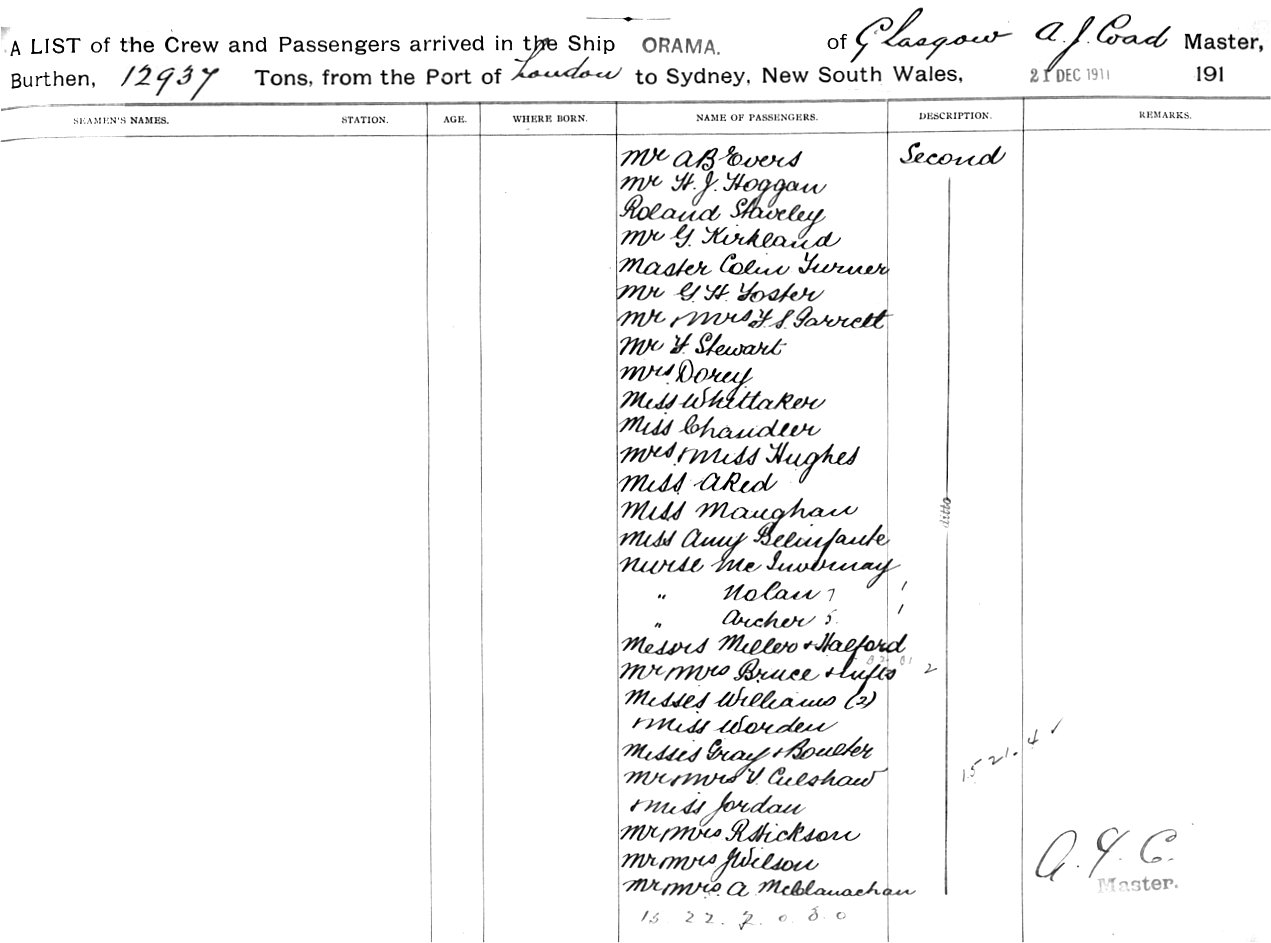 A LIST of the Crew and Passengers arrived in the Ship ORAMA. of Glasgow A. J. Coad Master,
Burthen, 12937 Tons, from the Port of London to Sydney, New South Wales, 21 DEC 1911 191
SEAMEN'S NAMES. STATION. AGE. WHERE BORN. NAME OF PASSENGERS. DESCRIPTION. REMARKS.
Mr A B Evers Second
Mr H. J. Hoggan
Roland Staveley
Mr G. Kirkland
Master Colin Turner
Mr G. H. Foster
Mr & Mrs F. S. Garrett
Mr F Stewart
Mrs Dorey
Miss Whittaker
Miss Chandler
Mrs & Miss Hughes
Miss A Reid
Miss Maughan ditto
Miss Amy Belinfante
Nurse Mc
" Nolan 7 1
" Archer 5 1
Messrs Millers & Halford
Mr & Mrs Bruce & 2
Misses Williams (2)
& Miss Worden
Misses Gray & Boulter
Mr & Mrs V. Culshaw 15 21. 4 ✓
& Miss Jordan
Mr & Mrs R Hickson
Mr & Mrs J Wilson
Mr & Mrs A McClanachan
A. J. C.
Master.
15 22. 7. 0 8 0